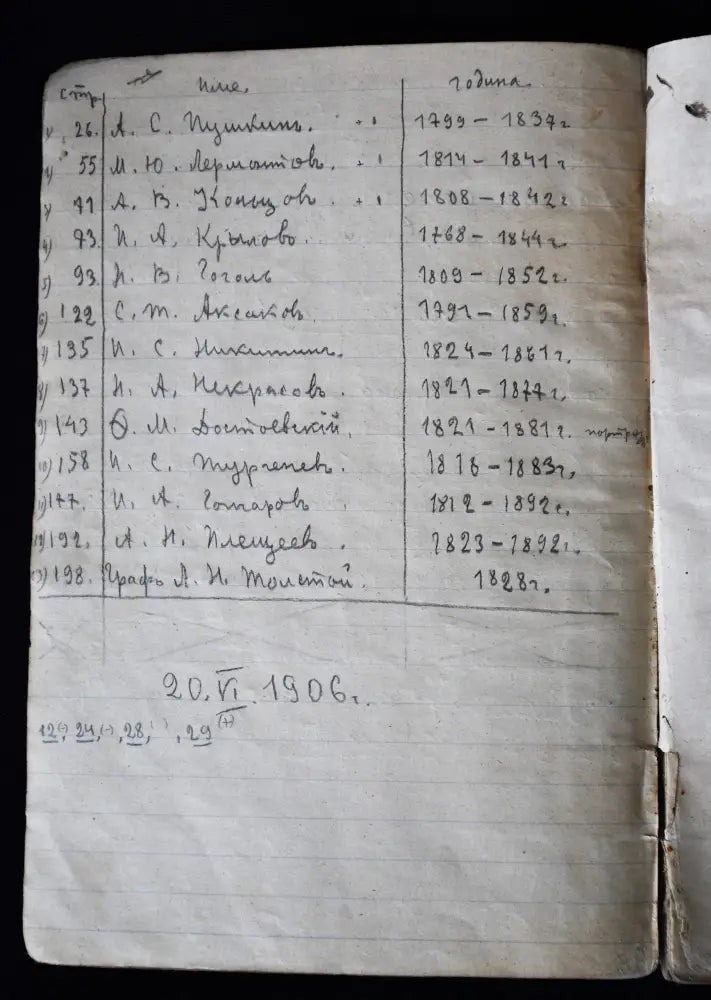 стр име. година.
1) 26. А. С. Пушкинъ. + 1799 – 1837 г
2) 55 М. Ю. Лермонтовъ. + 1814 – 1841 г
3) 71 А. В. Кольцовъ. + 1808 – 1842 г
4) 73. И. А. Крыловъ. 1768 – 1844 г
5) 93. Н. В. Гоголь 1809 – 1852 г.
6) 122 С. Т. Аксаковъ. 1791 – 1859 г.
7) 135 И. С. Никитинъ. 1824 – 1861 г.
8) 137 Н. А. Некрасовъ. 1821 – 1877 г.
9) 143 Ѳ. М. Достоевскій. 1821 – 1881 г.
10) 158 И. С. Тургеневъ. 1818 – 1883 г,
11) 177. И. А. Гончаровъ 1812 – 1892 г.
12) 192. А. Н. Плещеевъ. 1823 – 1892 г.
13) 198. Графъ Л. Н. Толстой. 1828 г.
20. VI. 1906 г.
12(-), 24,(-), 28, , 29(+)